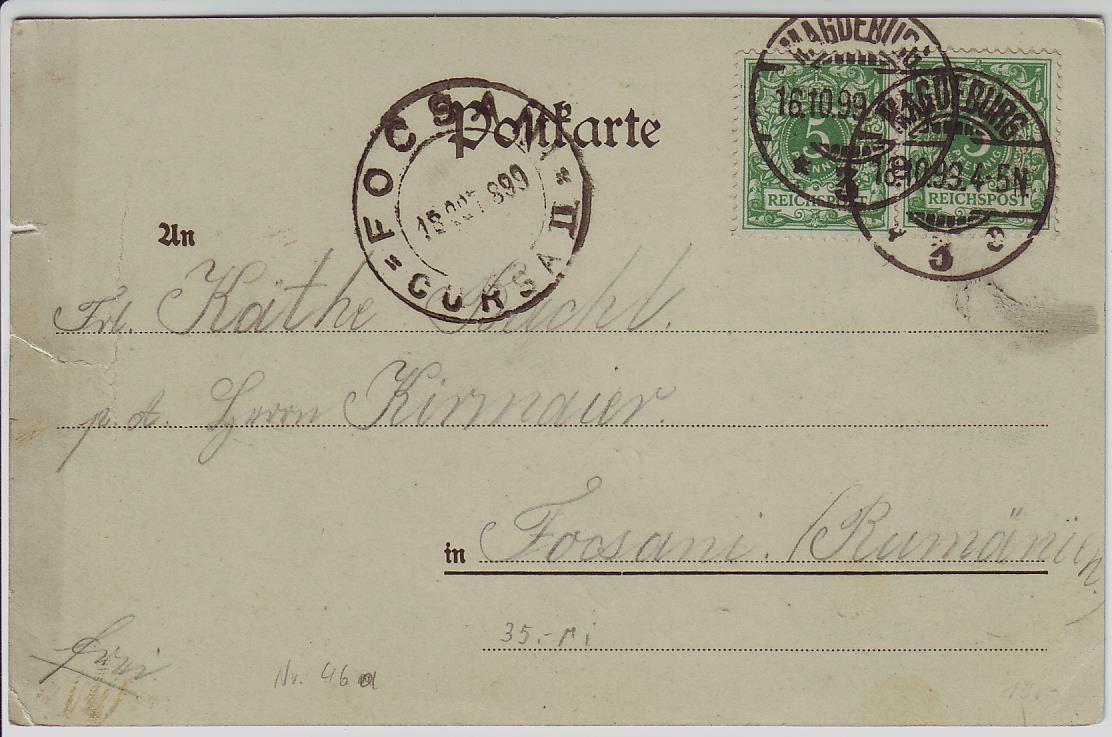 MAGDEBURG
16.10.99
* 3
MAGDEBURG
16.10.99. 4-5N.
* 3
5
PFENNIG
REICHSPOST
5
PFENNIG
REICHSPOST
FOCSANI
15 OCT 899
= CURSA II =
Postkarte
An
Frl. Käthe
p. A. Herrn Kirmaier.
in Focsani. (Rumänien)
35.-
frei
Nr. 46a